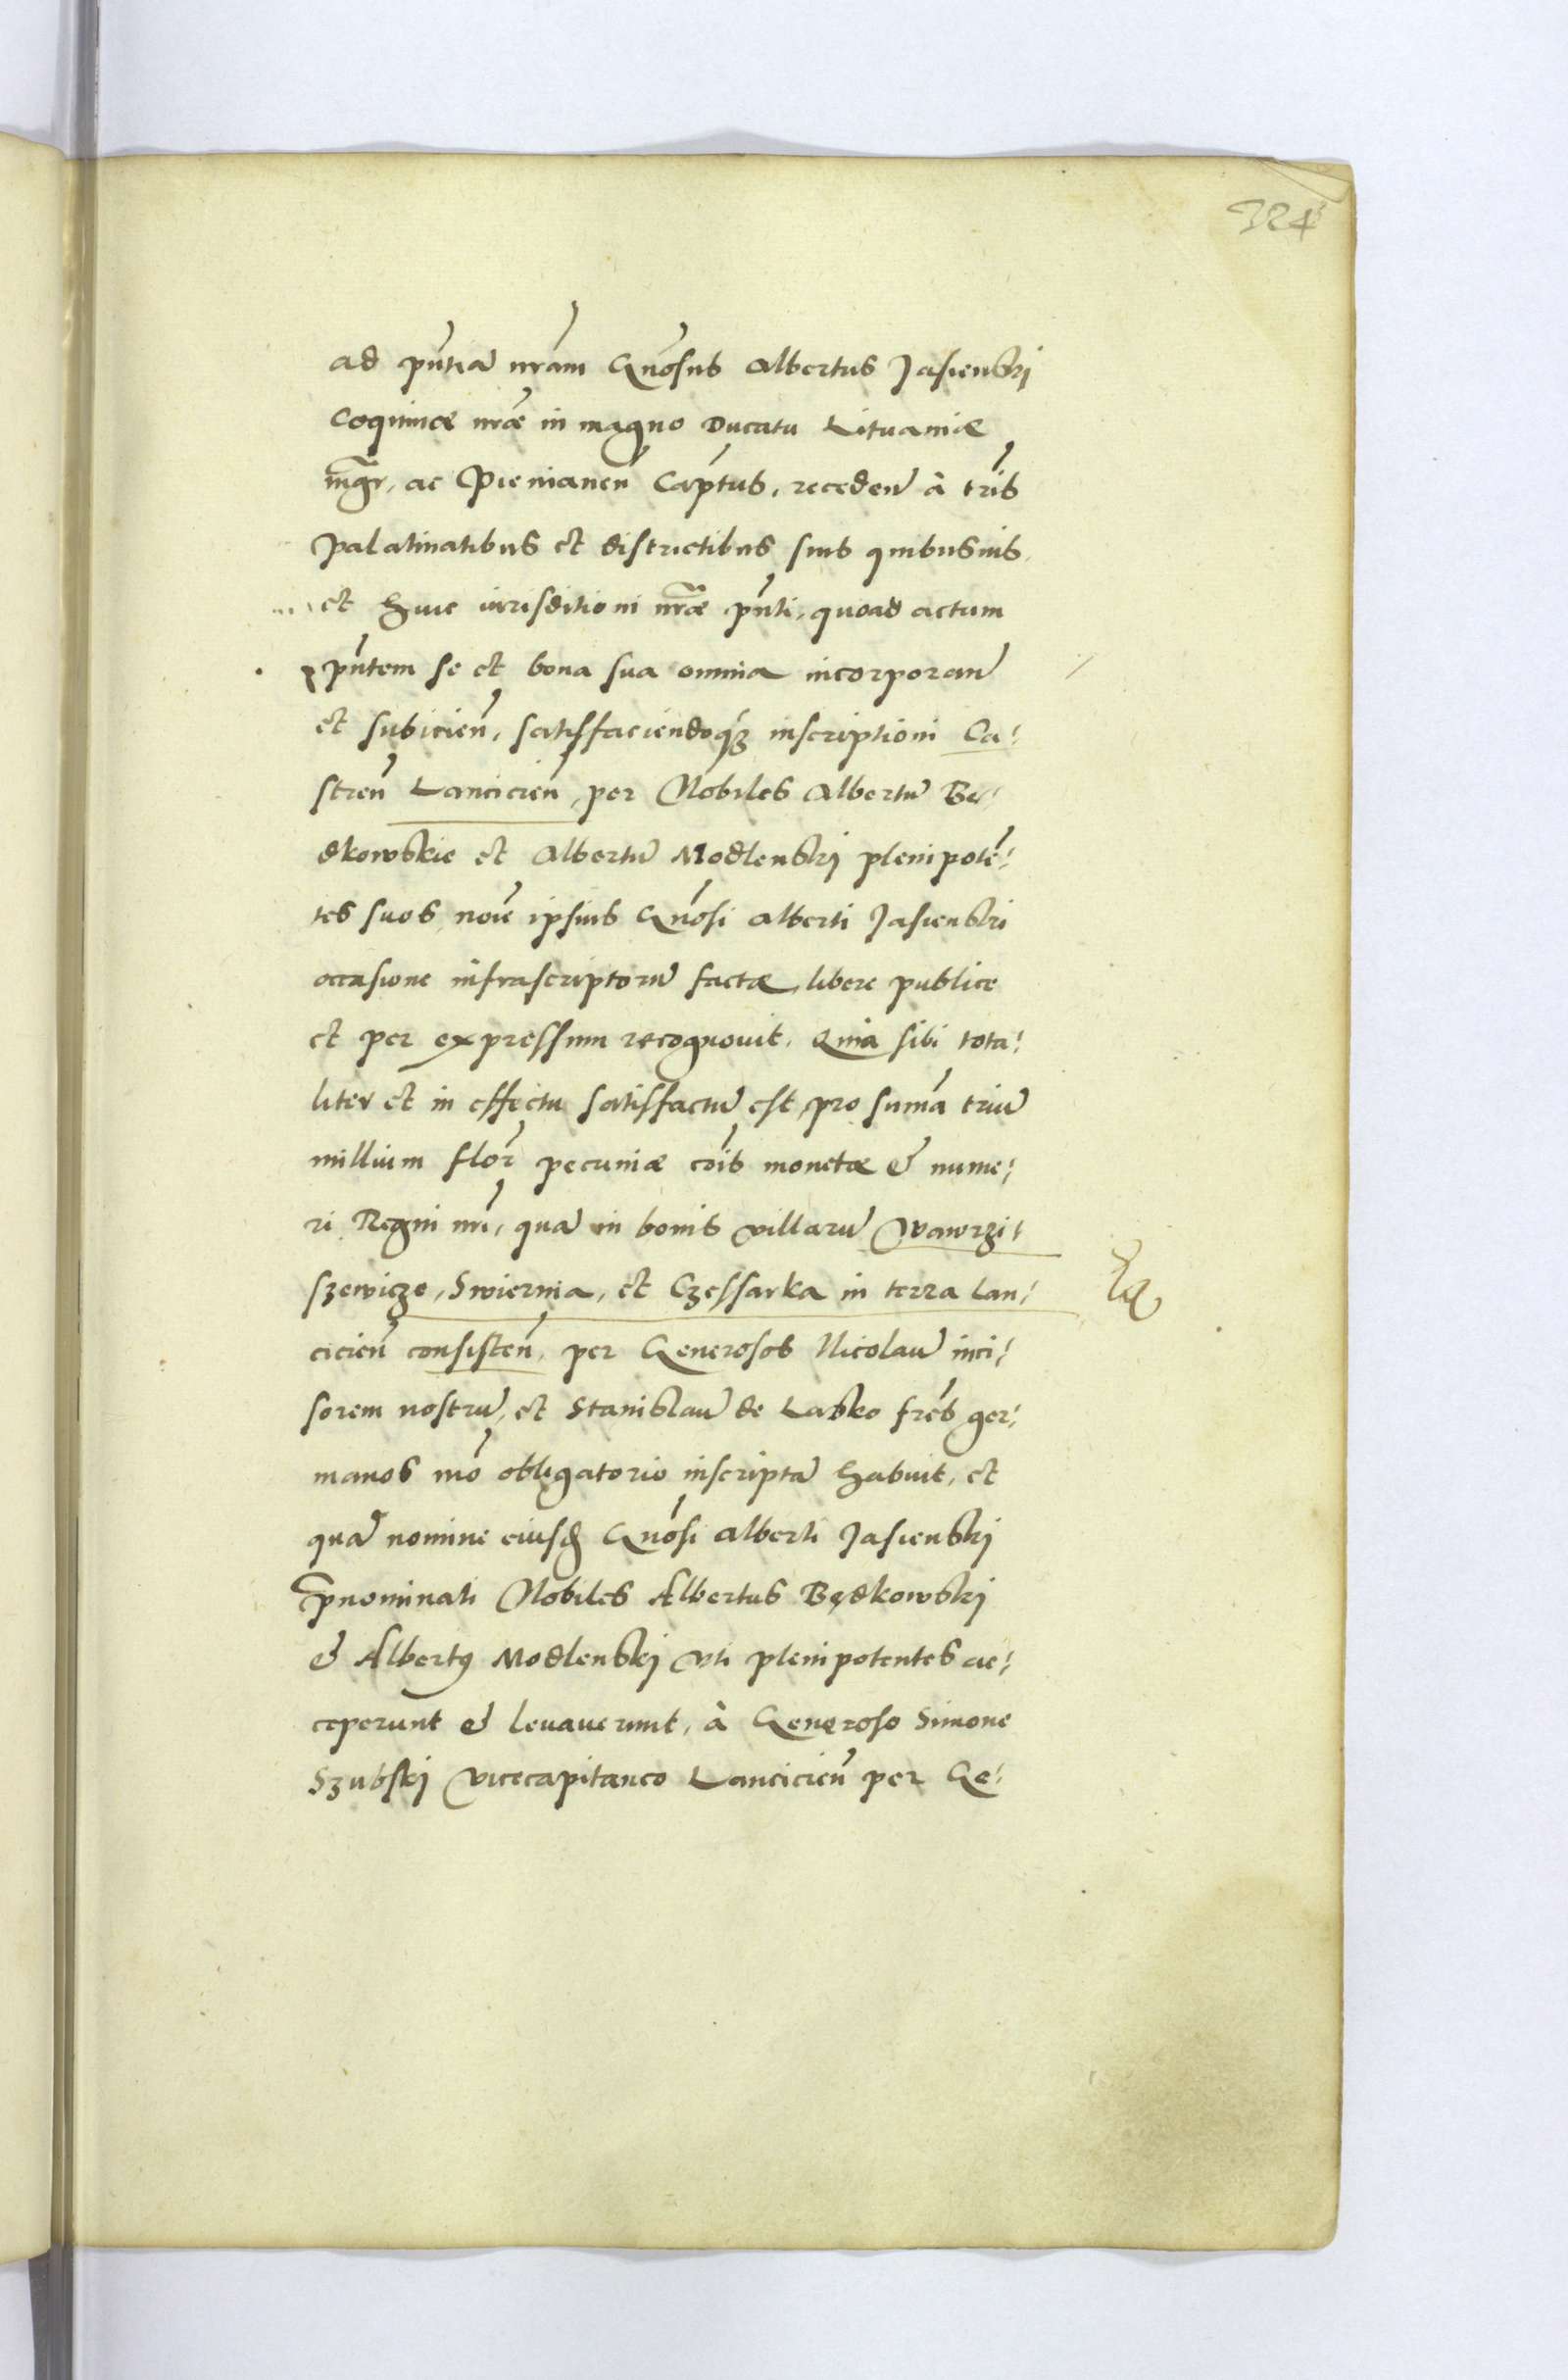 324
ad pn̄tiā nrām Gn̄osus Albertus Jasienski
Coquinæ nræ in magno Ducatu Lituaniæ
mgr̄, ac Pienianen̄ Cap̄tus, recedeñ à tr̄is
Palatinatibus et districtibus suis quibusuis
et huic iurisditioni nræ pn̄ti, quoad actum
pn̄tem se et bona sua omnia incorporan̄
et subicien̄, satisfaciendoq́ȝ inscriptioni Ca⸗
stren̄ Lancicien̄, per Nobiles Albertū Be⸗
dkowskie et Albertū Modlenskj plenipotē⸗
tes suos, noīe ipsius Gn̄osi Alberti Jasienski
occasione infrascriptorū factæ, libere publice
et per expressum recognouit. Quia sibi tota⸗
liter et in effectu satisfactū est, pro sum̄a triū
millium flor̄ pecuniæ cōis monetæ & nume⸗
ri Regni nr̄i, quā in bonis villarū Wawrzi⸗
szewicze, Swiernia, et Czessarka in terra Lan⸗
cicien̄ consisten̄, per Generosos Nicolaū inci⸗
sorem nostrū, et Stanislaū de Lasko fr̄es ger⸗
manos mō obligatorio inscriptā habuit, et
quā nomine eiusd̄ Gn̄osi Alberti Jasienskj
p̄nominati Nobiles Albertus Będkowskj
& Albertꝰ Modlenskj vti plenipotentes ac⸗
ceperunt & leuauerunt, à Generoso Simone
Szubskj vicecapitaneo Lancicien̄ per Ge⸗